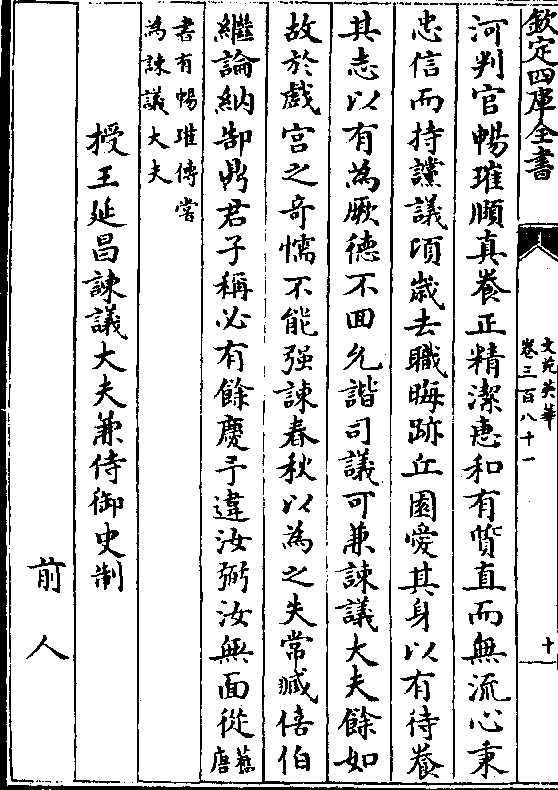 欽定四庫全書
文苑英華
卷三百八十一
十
河判官暢璀頤真養正精潔惠和有質直而無流心秉
忠信而持讜議頃歲去職晦跡丘園愛其身以有待養
其志以有為厥德不回允諧司議可兼諫議大夫餘如
故於戲宮之奇懦不能强諫春秋以為之失常臧僖伯
繼論納郜鼎君子稱必有餘慶予違汝弼汝無面從舊唐
書有暢璀傳嘗
為諫議大夫
授王延昌諫議大夫兼侍御史制
前人